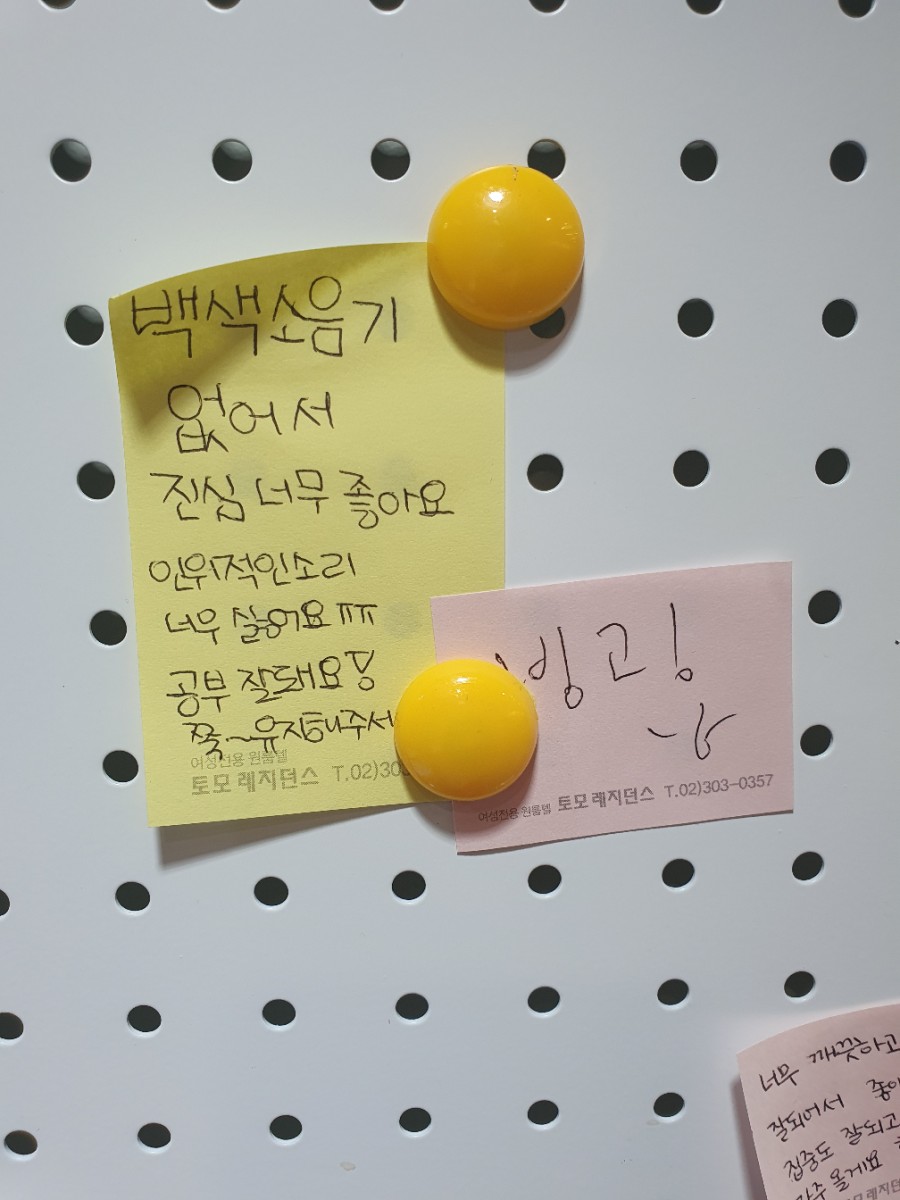 백색소음기
없어서
진심 너무 좋아요
인위적인소리
너무 싫어요 ㅠㅠ
공부 잘돼요
쭉~유지해주서
여성전용 원룸텔
토모 레지던스 T.02)30
빙그
여성전용 원룸텔 토모 레지던스 T.02)303-0357
너무 깨끗하고
잘되어서 좋아
집중도 잘되고
자주 올게요